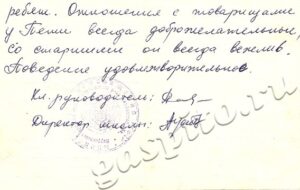 ребят. Отношения с товарищами
у Пети всегда доброжелательные,
со старшими он всегда вежлив.
Поведение удовлетворительное.
Кл. руководитель:
Директор школы:
gaspito.ru